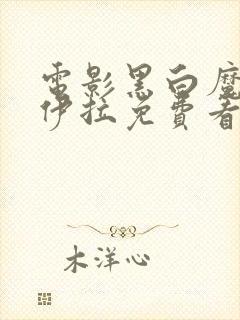 電影黑白魔
伊拉免費看
木洋心